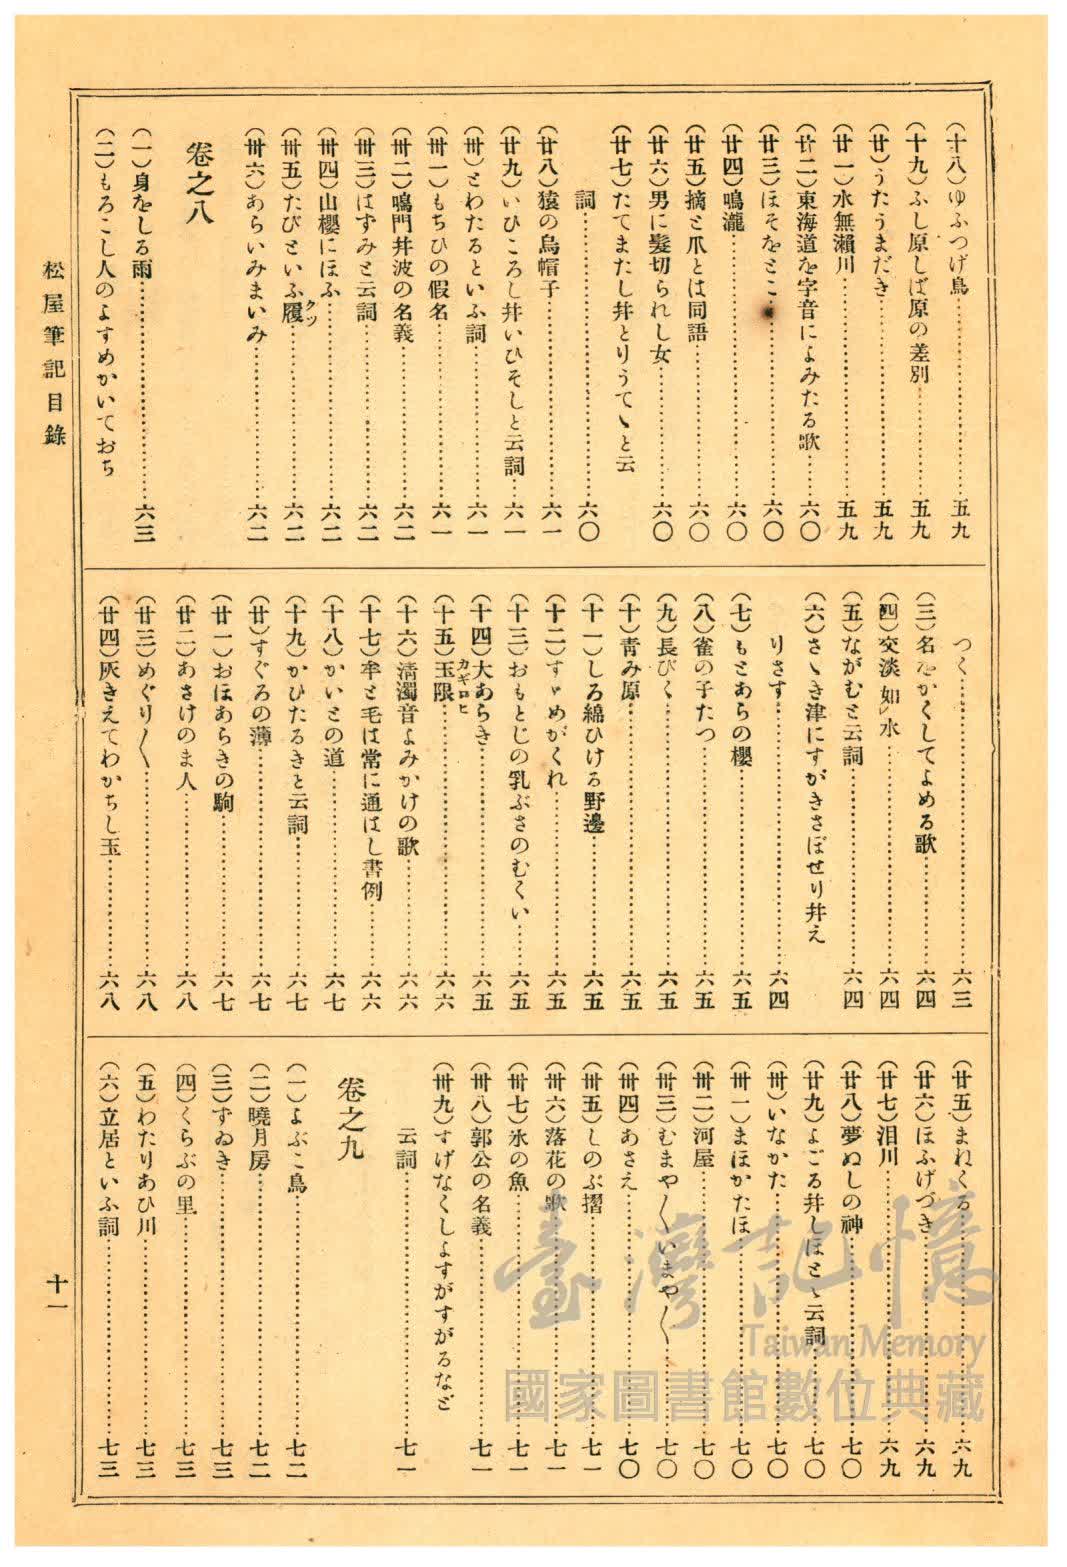 (十八)ゆふつげ鳥……五九
(十九)ふし原しば原の差別……五九
(廿)うたうまだき……五九
(廿一)水無瀨川……五九
(廿二)東海道を字音によみたる歌……六〇
(廿三)ほそをとこ……六〇
(廿四)鳴瀧……六〇
(廿五)摘と爪とは同語……六〇
(廿六)男に髮切られし女……六〇
(廿七)たてまたし幷とりうてゝと云
詞……六〇
(廿八)猿の烏帽子……六一
(廿九)いひころし幷いひそしと云詞……六一
(卅)とわたるといふ詞……六一
(卅一)もちひの假名……六一
(卅二)鳴門幷波の名義……六二
(卅三)はずみと云詞……六二
(卅四)山櫻にほふ……六二
(卅五)たびといふ履クツ……六二
(卅六)あらいみまいみ……六二
卷之八
(一)身をしる雨……六三
(二)もろこし人のよすめかいておち
つく……六三
(三)名をかくしてよめる歌……六四
(四)交淡如レ水……六四
(五)ながむと云詞……六四
(六)さゝき津にすがきさほせり幷え
りさす……六四
(七)もとあらの櫻……六五
(八)雀の子たつ……六五
(九)長びく……六五
(十)靑み原……六五
(十一)しろ綿ひける野邊……六五
(十二)すゞめがくれ……六五
(十三)おもとじの乳ぶさのむくい……六五
(十四)大あらき……六五
(十五)玉限カギロヒ……六六
(十六)淸濁音よみかけの歌……六六
(十七)牟と毛は常に通はし書例……六六
(十八)かいとの道……六七
(十九)かひたるきと云詞……六七
(廿)すぐろの薄……六七
(廿一)おほあらきの駒……六七
(廿二)あさけのま人……六八
(廿三)めぐり〱……六八
(廿四)灰きえてわかちし玉……六八
(廿五)まねくる……六九
(廿六)ほふげづき……六九
(廿七)泪川……六九
(廿八)夢ぬしの神……七〇
(廿九)よごる幷しほとゝ云詞……七〇
(卅)いなかた……七〇
(卅一)まほかたほ……七〇
(卅二)河屋……七〇
(卅三)むまや〱いまや〱……七〇
(卅四)あさえ……七〇
(卅五)しのぶ摺……七一
(卅六)落花の歌……七一
(卅七)氷の魚……七一
(卅八)郭公の名義……七一
(卅九)すげなくしよすがすがるなど
云詞……七一
卷之九
(一)よぶこ鳥……七二
(二)曉月房……七二
(三)すゐき……七三
(四)くらぶの里……七三
(五)わたりあひ川……七三
(六)立居といふ詞……七三
松屋筆記目錄
十一
臺灣記憶
Taiwan Memory
國家圖書館數位典藏